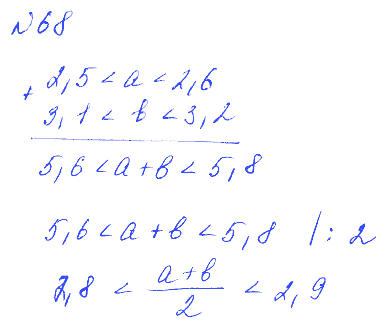 №68
+ 2,5 < a < 2,6
3,1 < b < 3,2
5,6 < a + b < 5,8
5,6 < a + b < 5,8 |: 2
2,8 < (a+b)/2 < 2,9